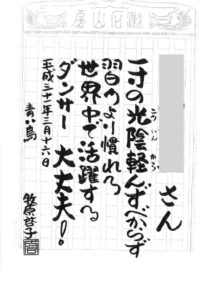 漱石山房
さん
一寸の光陰軽んずべからず
こういん かろ
習うより慣れろ
世界中で活躍する
ダンサー 大丈夫!
平成三十一年三月十六日
青い鳥